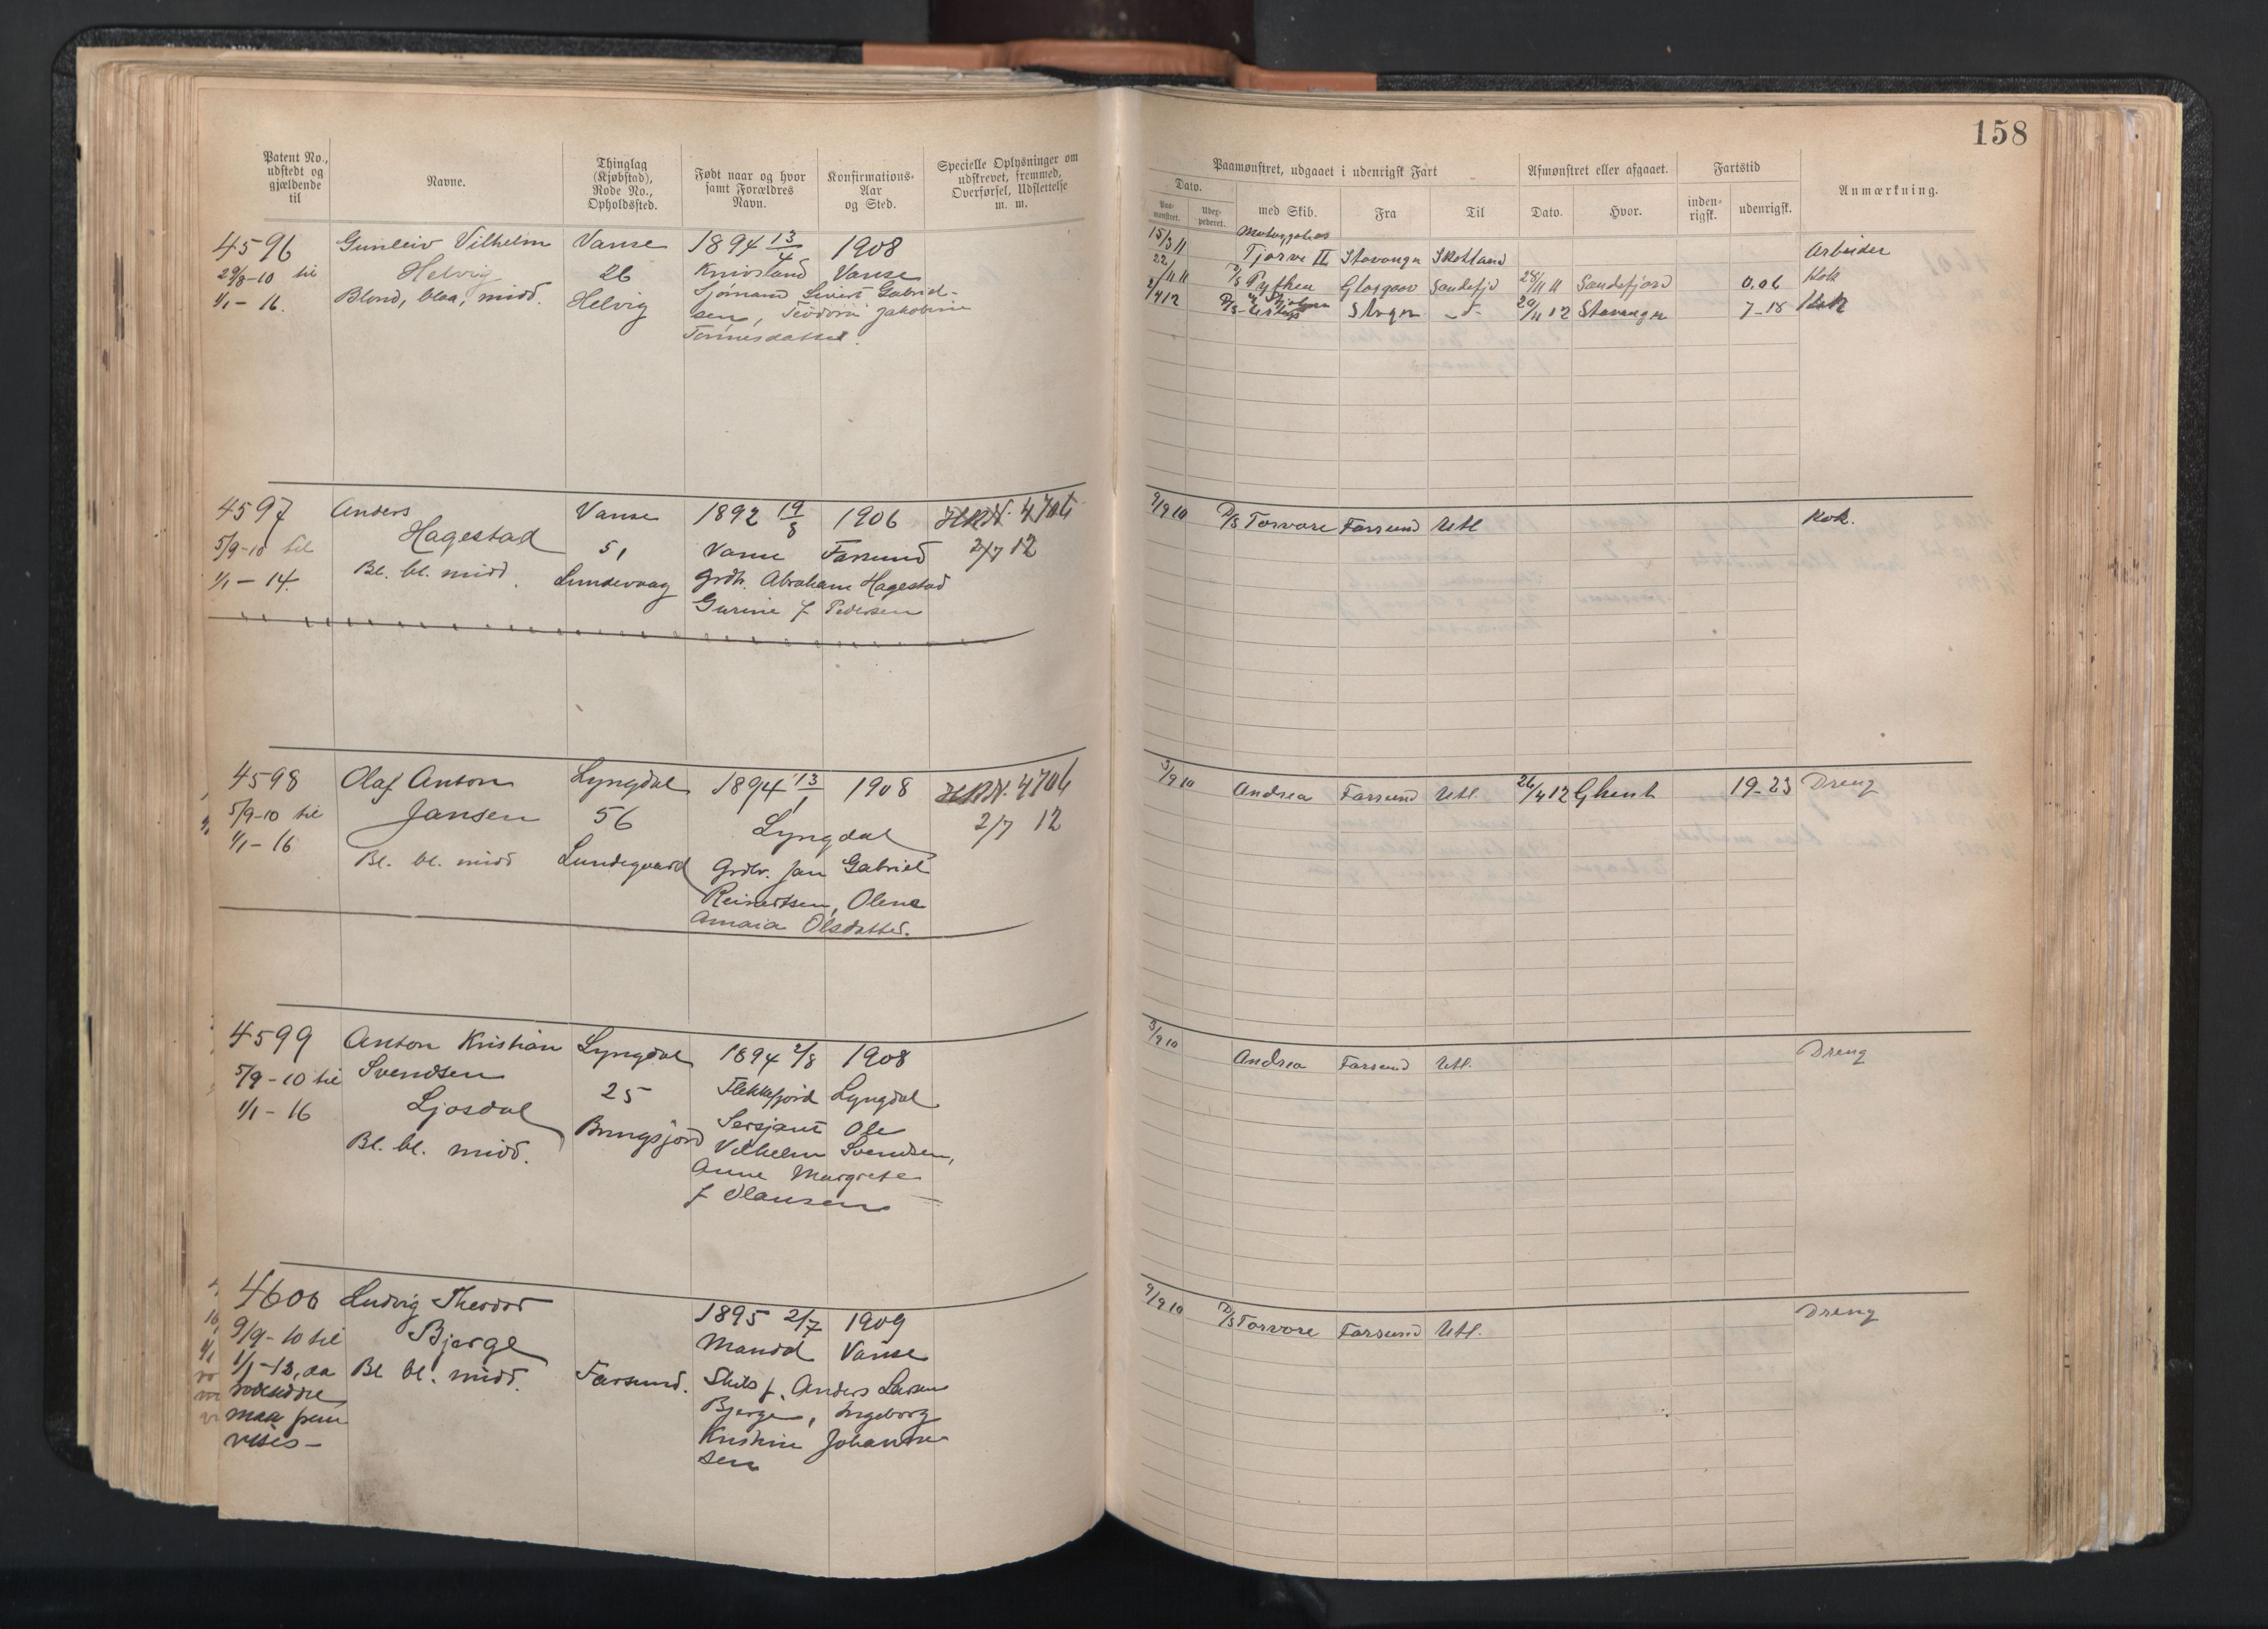 158
Patent No., udstedt og gjældende til
Navne.
Thinglag (Kjøbstad), Rode No., Opholdssted.
Født naar og hvor samt Forældres Navn.
Konfirmations-Aar og Sted.
Specielle Oplysninger om udskrevet, fremmed, Overførsel, Udslettelse m. m.
Paamønstret, udgaaet i udenrigsk Fart
Afmønstret eller afgaaet.
Fartstid
Anmærkning.
Dato.
Paa-mønstret.
Udex-pederet.
med Skib.
Fra
Til
Dato.
Hvor.
inden-rigsk.
udenrigsk.
4596 Gunleiv Vilhelm Vanse 1894 13/4 1908
29/8-10 til Helvig 26 Knivsland Vanse
1/1-16. Blond, blaa, midd. Helvig Sjømand Sivert Gabriel-
sen, Teodora Jakobine
Tønnesdatter.
15/3 11 Tjorve II Stavanger Skotland Arbeider
22/11 11 D/S Pythea Glasgow Sandefjd 28/11 11 Sandefjord 0.06 Kok
2/4 12 D/S Stvgr -d- 20/11 12 Stavanger 7-18 Kok
4597 Anders Vanse 1892 19/8 1906 4704
5/9-10 til Hagestad 51 Vanse Farsund 2/7 12
1/1-14. Bl. bl. midd. Lundevaag Grdbr. Abraham Hagestad
Gurine f Pedersen
9/9 10 D/S Torvore Farsund Utl Kok.
4598 Olaf Anton Lyngdal 1894 13/1 1908 4706
5/9-10 til Jansen 56 Lyngdal 2/7 12
1/1-16 Bl. bl. midd Lundegaard Grdbr. Jan Gabriel
Reinertsen, Olene
Amaia Olsdatter.
3/9 10 Andrea Farsund Utl. 26/4 12 Ghent 19-23 Dreng
4599 Anton Kristian Lyngdal 1894 2/8 1908
5/9-10 til Svendsen 25 Flekkefjord Lyngdal
1/1-16 Ljosdal Sersjant Ole
Bl. bl. midd. Vilhelm Svendsen,
Anne Margrete
f Olausen
3/9 10 Andrea Farsund Utl. Dreng
4600 Ludvig Theodor 1895 2/7 1909
9/9-10 til Bjerge Mandal Vanse
1/1-13, da Bl bl. midd. Farsund. Skibsf. Anders Larsen
Bjerge, Ingeborg
maa frem Kristine Johanne-
vises- sen
9/9 10 D/S Torvore Farsund Utl. Dreng